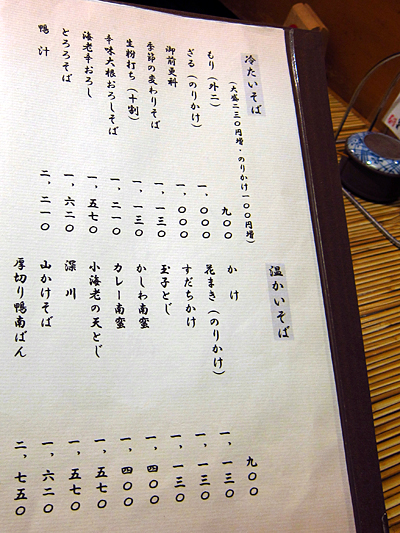 冷たいそば
(大盛二三〇円増・のりかけ一〇〇円増)
もり(外二) 九〇〇
ざる(のりかけ) 一、〇〇〇
御前更科 一、〇〇〇
季節の変わりそば 一、一三〇
生粉打ち(十割) 一、一三〇
辛味大根おろしそば 一、二一〇
海老辛おろし 一、五七〇
とろろそば 一、六二〇
鴨汁 二、二一〇
温かいそば
かけ 九〇〇
花まき(のりかけ) 一、一三〇
すだちかけ 一、一三〇
玉子とじ 一、一三〇
かしわ南蛮 一、四〇〇
カレー南蛮 一、四〇〇
小海老の天とじ 一、五七〇
深川 一、五七〇
山かけそば 一、六二〇
厚切り鴨南ばん 二、七五〇